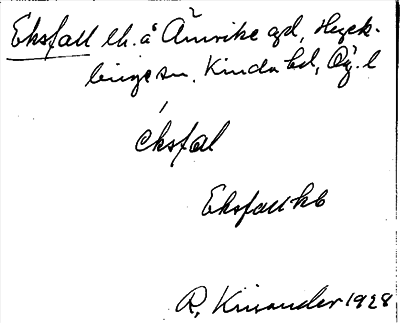 Eksfall lh. å Ämrike gd, Hyck-
linge sn, Kinda hd, Ög. l
éksfal
Eksfall hb
R. Kinander 1928